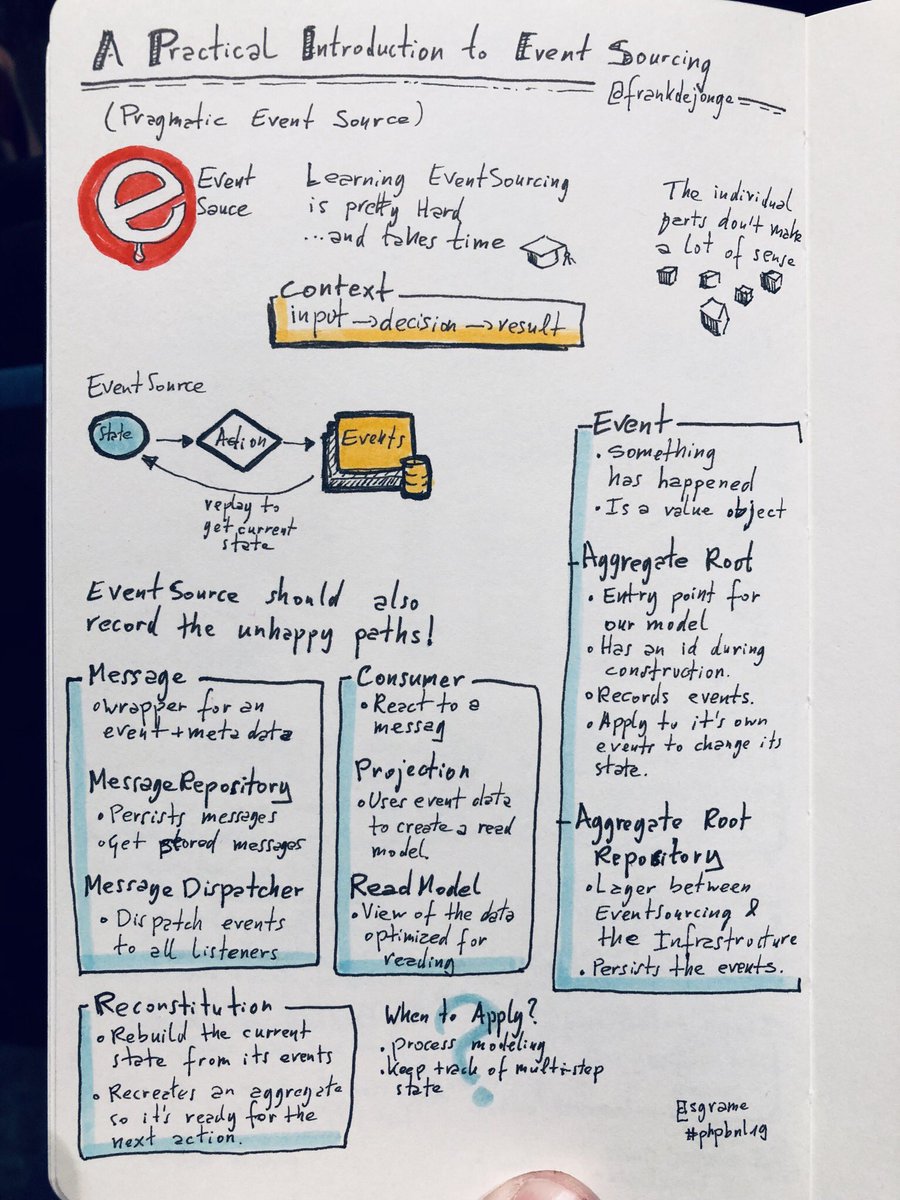 A Practical Introduction to Event Sourcing
@frankdejonge
(Pragmatic Event Source)
e
Event
Sauce
Learning EventSourcing
is pretty Hard
...and takes time
The individual
parts don't make
a lot of sense
Context
input → decision → result
EventSource
State
Action
Events
replay to
get current
state
EventSource should also
record the unhappy paths!
Message
• wrapper for an
event + meta data
MessageRepository
• Persists messages
• Get stored messages
Message Dispatcher
• Dispatch events
to all listeners
Consumer
• React to a
messag
Projection
• Uses event data
to create a read
model.
ReadModel
• View of the data
optimized for
reading
Event
• something
has happened
• Is a value object
Aggregate Root
• Entry point for
our model
• Has an id during
construction.
• Records events.
• Apply to it's own
events to change its
state.
Aggregate Root
Repository
• Lager between
Eventsourcing &
the Infrastructure
• Persists the events.
Reconstitution
• Rebuild the current
state from its events
• Recreates an aggregate
so it's ready for the
next action.
When to Apply?
?
• process modeling
• Keep track of multi-step
state
@sgrame
#phpbnl19